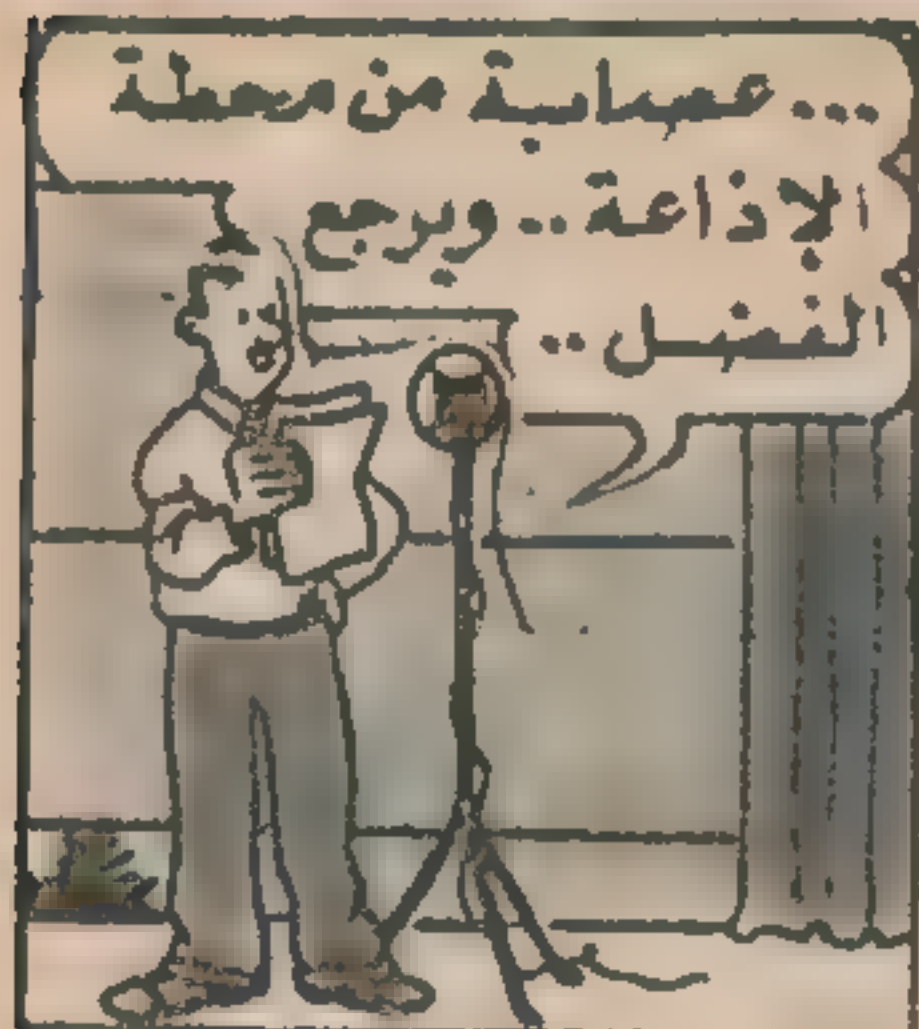 ... عصابة من محطة
الإذاعة .. ويرجع
الفضل ..